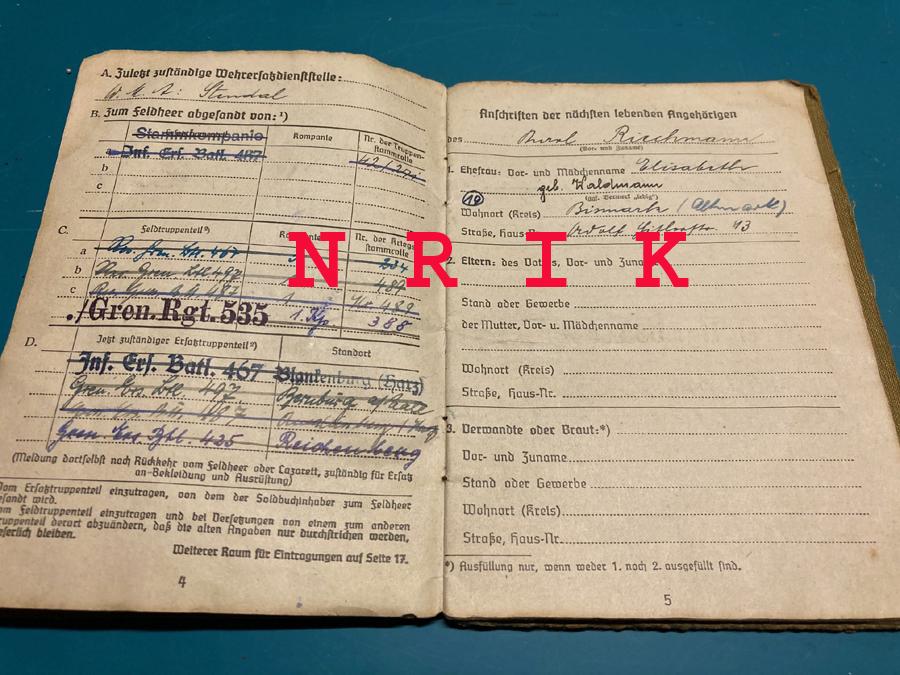 A. Zuletzt zuständige Wehrersatzdienststelle:
W. E. A: Stendal
B. Zum Feldheer abgesandt von:¹)
Kompanie
Nr. der Truppen-
stammrolle
Stammkompanie
a Inf. Ers. Batl. 467
b
c
C.
Feldtruppenteil²)
Kompanie
Nr. der Kriegs-
stammrolle
a
234
b
c
1
./Gren. Rgt. 535 1. Kp. 388
D.
Jetzt zuständiger Ersatztruppenteil²)
Standort
Inf. Ers. Batl. 467 Blankenburg (Harz)
Gren. Ers. Btl. 497. Bernburg a/Saale
Gren. Ers. Btl. 435 Reichenberg
(Meldung dortselbst nach Rückkehr vom Feldheer oder Lazarett, zuständig für Ersatz
an Bekleidung und Ausrüstung)
Vom Ersatztruppenteil einzutragen, von dem der Soldbuchinhaber zum Feldheer
gesandt wird.
Vom Feldtruppenteil einzutragen und bei Versetzungen von einem zum anderen
truppenteil derart abzuändern, daß die alten Angaben nur durchstrichen werden,
leserlich bleiben.
Weiterer Raum für Eintragungen auf Seite 17.
4
Anschriften der nächsten lebenden Angehörigen
des
(Vor- und Zuname)
1. Ehefrau: Vor- und Mädchenname Elisabeth
geb. Waldmann
(ggf. Vermerk „ledig“)
10
Wohnort (Kreis) Bismark (Altmark)
Straße, Haus-Nr. Adolf Hitlerstr. 43
2. Eltern: des Vaters, Vor- und Zuname
Stand oder Gewerbe
der Mutter, Vor- u. Mädchenname
Wohnort (Kreis)
Straße, Haus-Nr.
3. Verwandte oder Braut:*)
Vor- und Zuname
Stand oder Gewerbe
Wohnort (Kreis)
Straße, Haus-Nr.
*) Ausfüllung nur, wenn weder 1. noch 2. ausgefüllt sind.
5
NRIK